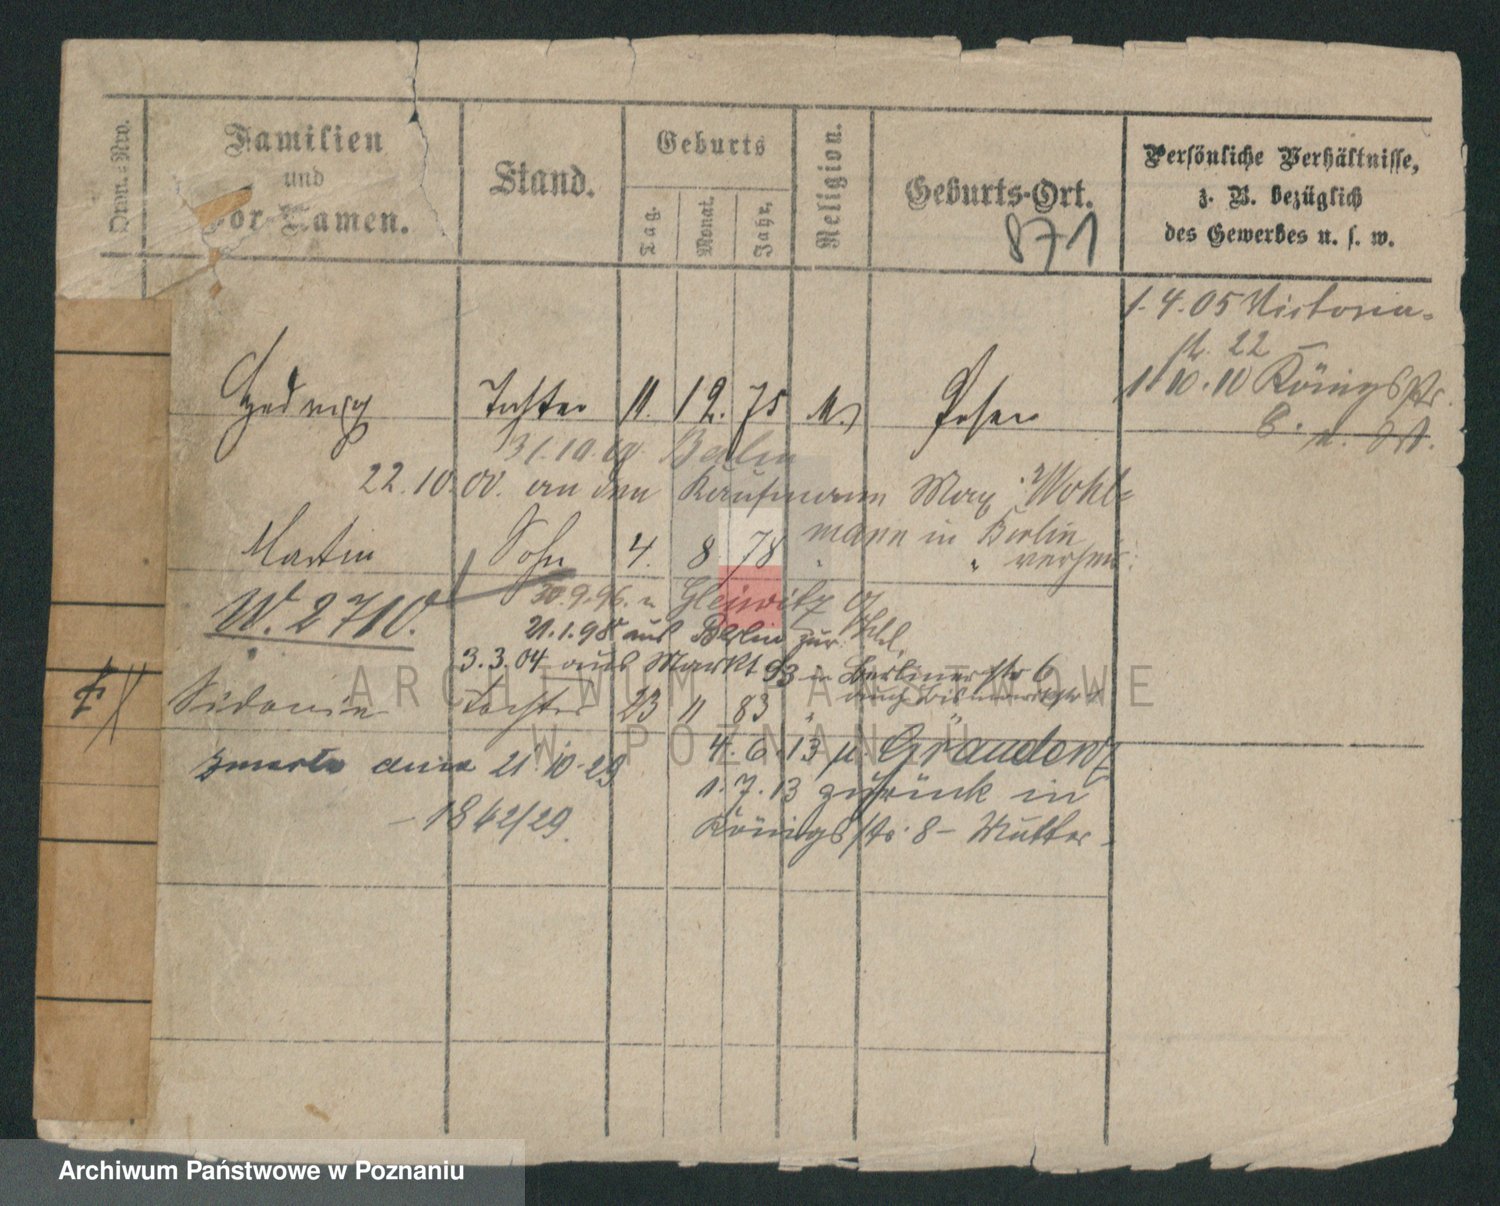 Num.-Nro.
Familien
und
Vor-Namen.
Stand.
Geburts
Tag.
Monat.
Jahr.
Religion.
Geburts-Ort.
871
Persönliche Verhältnisse,
z. B. bezüglich
des Gewerbes u. s. w.
1.4.05 Victoria-
str. 22 –
1.10.10 Königsstr.
8.
Hedwig Tochter 11. 12. 75 M. Posen
31.10. Berlin
22.10.00. an den Kaufmann Max Wohl-
mann in Berlin
verheir.
Martin Sohn 4. 8. 78 " "
W. 2710.
30.9.96. n Gleiwitz
21.1.98 aus Berlin zur
3.3.04 aus Markt 93 in Berlinerstr 6
auch Bismarckstr
Sidonie Tochter 23 11 83 "
zmarła dnia 21.10.29
– 1862/29.
4.6.13 n Graudenz
1.7.13 zurück in
Königsstr. 8 – Mutter –
ARCHIWUM PAŃSTWOWE
W POZNANIU
Archiwum Państwowe w Poznaniu